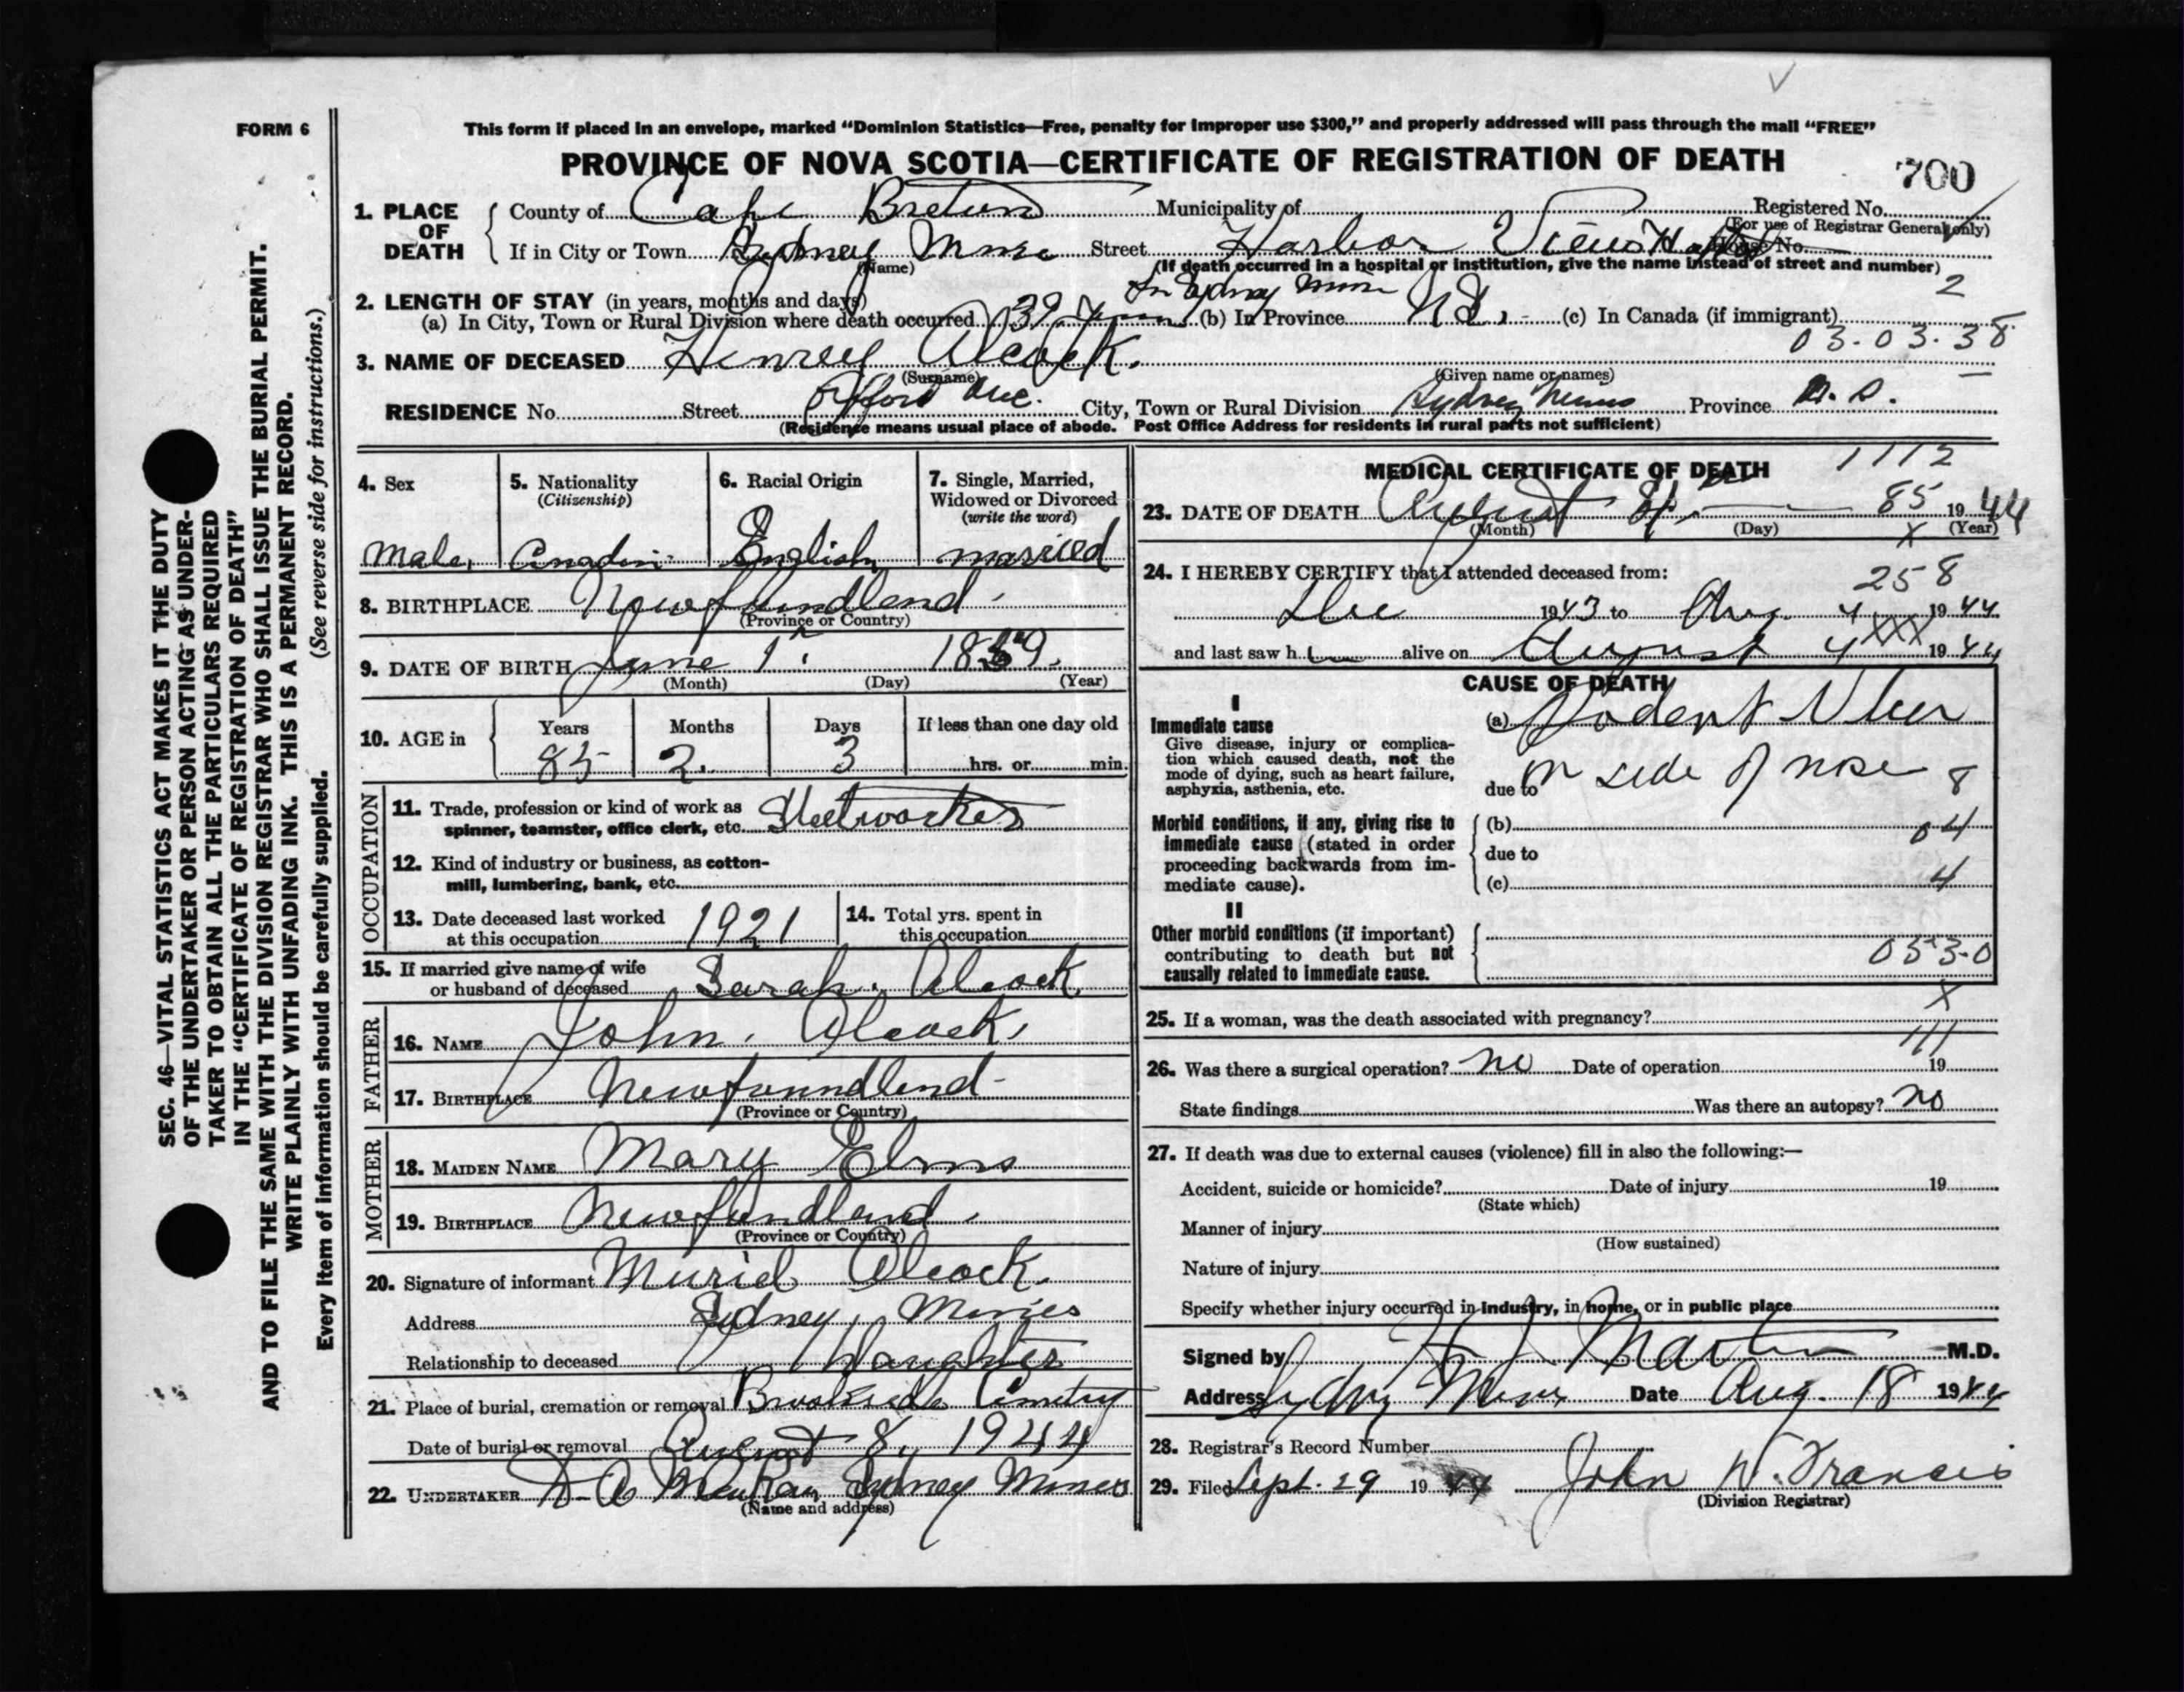 FORM 6
This form if placed in an envelope, marked “Dominion Statistics—Free, penalty for improper use $300,” and properly addressed will pass through the mail “FREE”
PROVINCE OF NOVA SCOTIA—CERTIFICATE OF REGISTRATION OF DEATH
700
1. PLACE OF DEATH
County of Cape Breton Municipality of Registered No.
(For use of Registrar General only)
If in City or Town Sydney Mines Street Harbor View House No.
(Name) (If death occurred in a hospital or institution, give the name instead of street and number)
2. LENGTH OF STAY (in years, months and days) In Sydney Mines 2
(a) In City, Town or Rural Division where death occurred 39 years (b) In Province N S. (c) In Canada (if immigrant)
03-03-38
3. NAME OF DECEASED Henrey Alcock.
(Surname) (Given name or names)
RESIDENCE No. Street Ave. City, Town or Rural Division Sydney Mines Province N. S.
(Residence means usual place of abode. Post Office Address for residents in rural parts not sufficient)
4. Sex Male.
5. Nationality (Citizenship) Canadin
6. Racial Origin English
7. Single, Married, Widowed or Divorced (write the word) married
8. BIRTHPLACE Newfundlend
(Province or Country)
9. DATE OF BIRTH June 1 1859.
(Month) (Day) (Year)
10. AGE in Years Months Days If less than one day old
85 2. 3 hrs. or min.
OCCUPATION
11. Trade, profession or kind of work as spinner, teamster, office clerk, etc. Steelworker
12. Kind of industry or business, as cotton-mill, lumbering, bank, etc.
13. Date deceased last worked at this occupation 1921
14. Total yrs. spent in this occupation
15. If married give name of wife or husband of deceased Sarah. Alcock.
FATHER
16. NAME John. Alcock.
17. BIRTHPLACE Newfunndlend
(Province or Country)
MOTHER
18. MAIDEN NAME Mary Elms
19. BIRTHPLACE Newfundlend.
(Province or Country)
20. Signature of informant Muriel Alcock.
Address Sydney, Mines
Relationship to deceased Daughter
21. Place of burial, cremation or removal Brookside Cemetry
Date of burial or removal August 8, 1944
22. UNDERTAKER D. A. Sydney Mines
(Name and address)
MEDICAL CERTIFICATE OF DEATH
1112
23. DATE OF DEATH August 4 85 1944
(Month) (Day) X (Year)
24. I HEREBY CERTIFY that I attended deceased from: 258
Dec 1943 to Aug. 4 1944
and last saw h alive on August 4 XXX 1944
CAUSE OF DEATH
I
Immediate cause (a) Rodent Ulcer
Give disease, injury or complication which caused death, not the mode of dying, such as heart failure, asphyxia, asthenia, etc.
due to on side of nose 8
Morbid conditions, if any, giving rise to immediate cause (stated in order proceeding backwards from immediate cause).
(b) 04
due to
(c) 4
II
Other morbid conditions (if important) contributing to death but not causally related to immediate cause.
053-0
X
25. If a woman, was the death associated with pregnancy?
111
26. Was there a surgical operation? no Date of operation 19
State findings Was there an autopsy? no
27. If death was due to external causes (violence) fill in also the following:—
Accident, suicide or homicide? Date of injury 19
(State which)
Manner of injury
(How sustained)
Nature of injury
Specify whether injury occurred in industry, in home, or in public place
Signed by Martin M.D.
Address Sydney Mines Date Aug. 18 1944
28. Registrar's Record Number
29. Filed Sept. 29 1944 John W. Francis
(Division Registrar)
SEC. 46—VITAL STATISTICS ACT MAKES IT THE DUTY
OF THE UNDERTAKER OR PERSON ACTING AS UNDER-
TAKER TO OBTAIN ALL THE PARTICULARS REQUIRED
IN THE “CERTIFICATE OF REGISTRATION OF DEATH”
AND TO FILE THE SAME WITH THE DIVISION REGISTRAR WHO SHALL ISSUE THE BURIAL PERMIT.
WRITE PLAINLY WITH UNFADING INK. THIS IS A PERMANENT RECORD.
Every item of information should be carefully supplied. (See reverse side for instructions.)